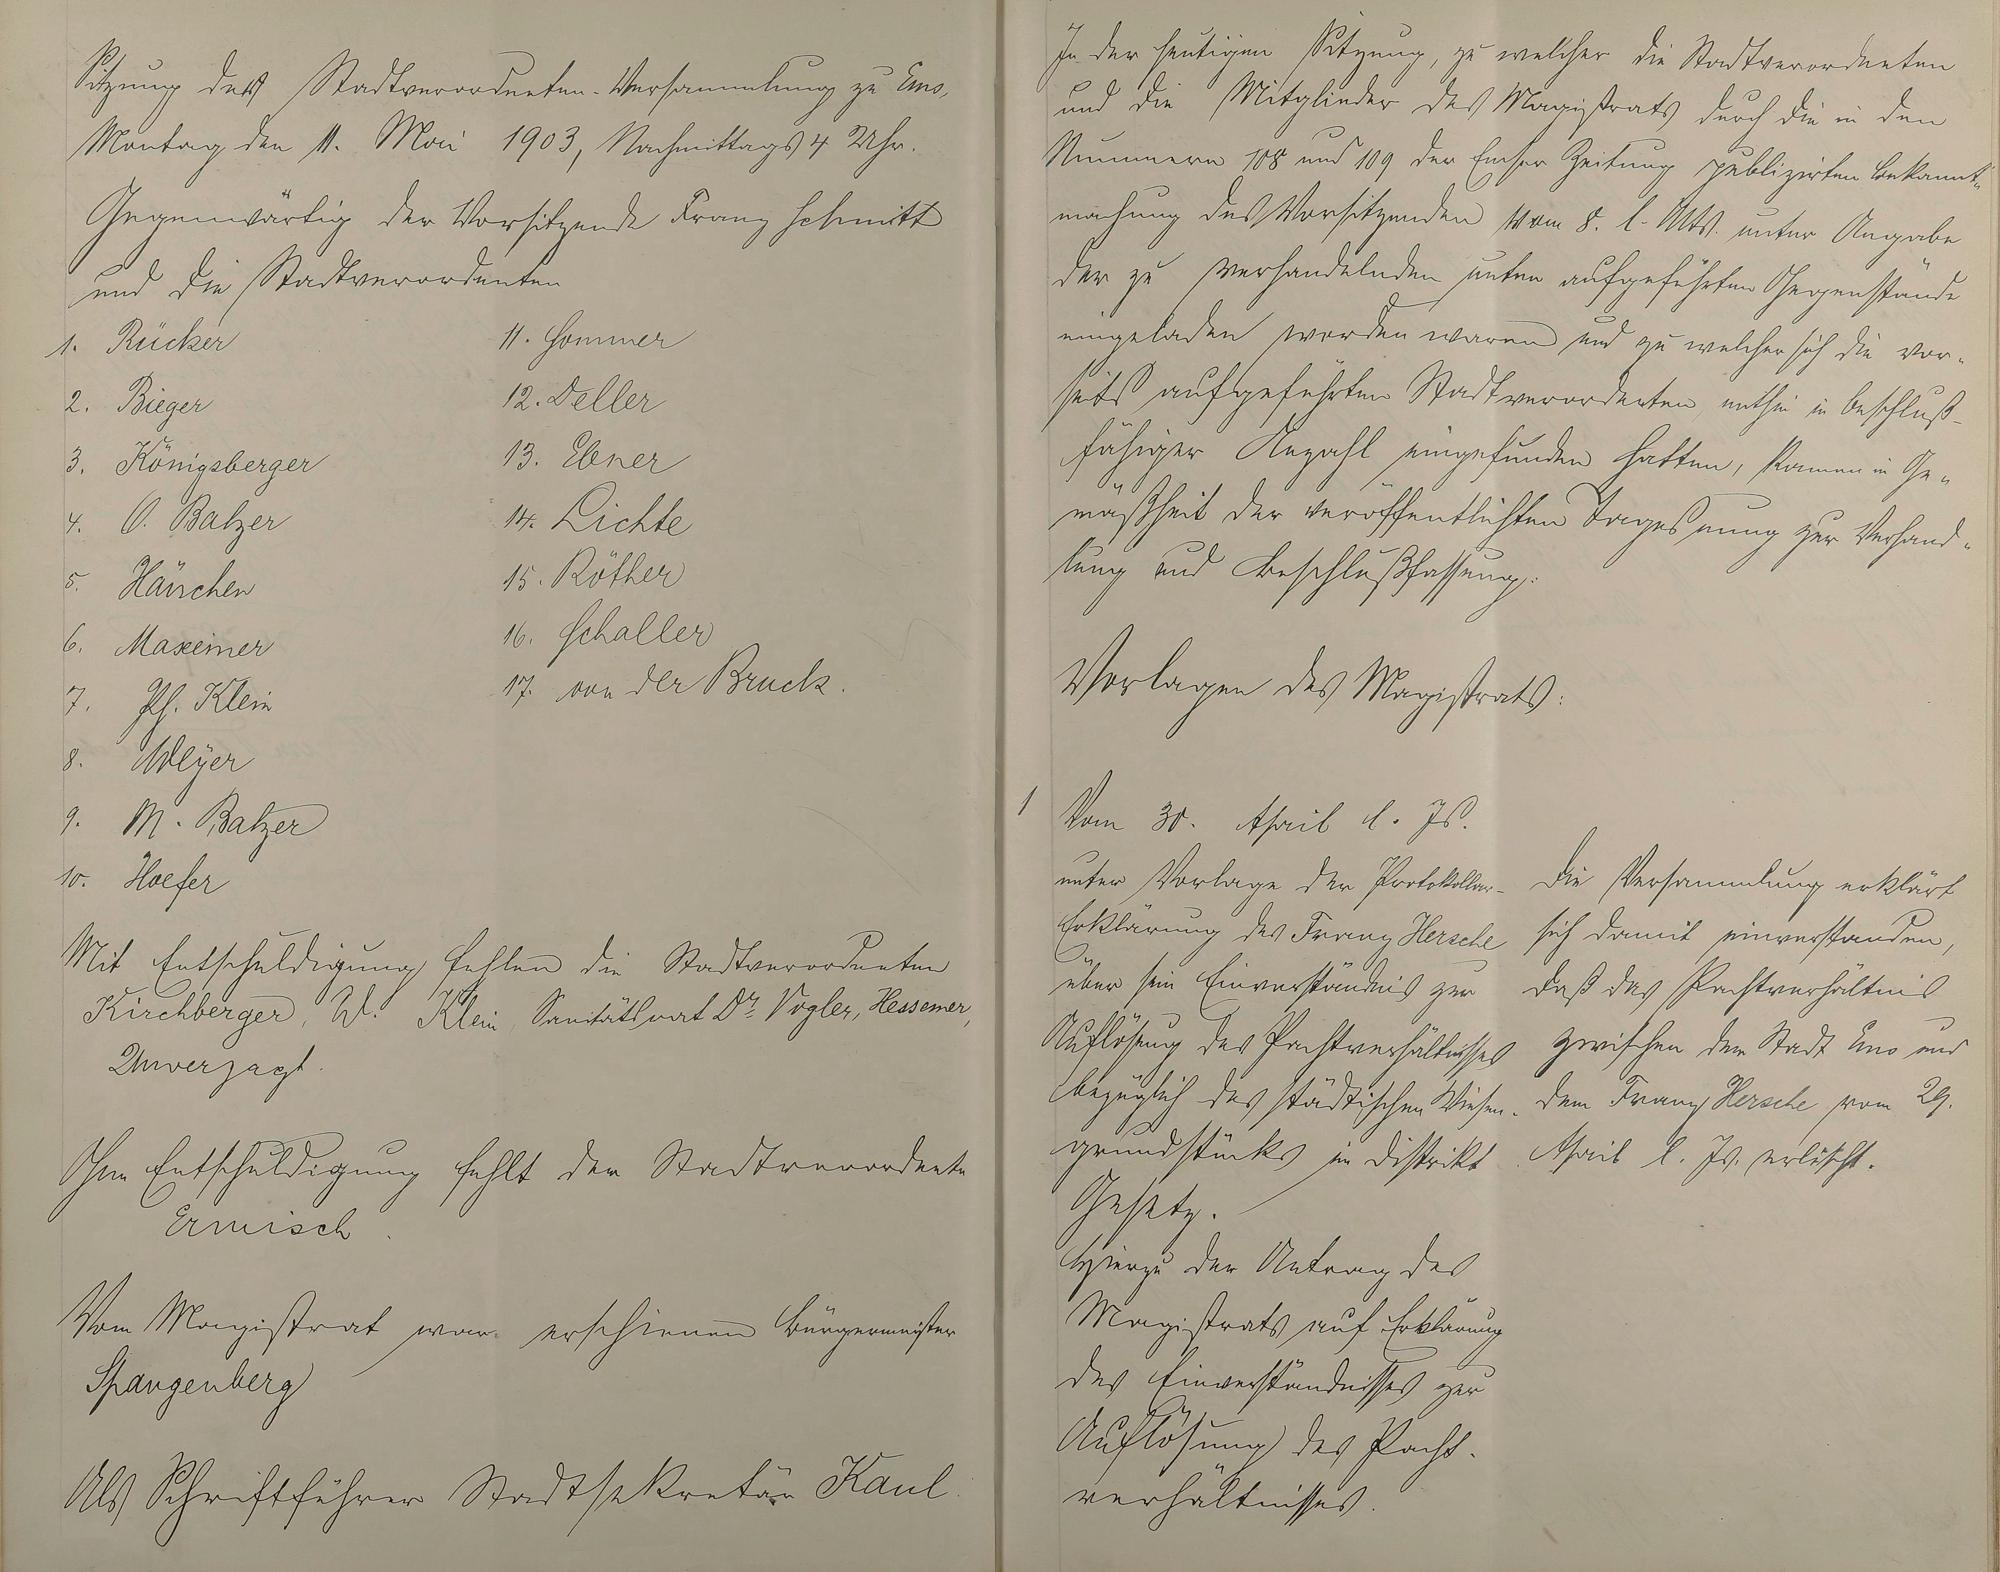 Sitzung der Stadtverordneten-Versammlung zu Ems,
Montag den 11. Mai 1903, Nachmittags 4 Uhr.
Gegenwärtig der Vorsitzende Franz Schmitt
und die Stadtverordneten
1. Rücker
2. Bieger
3. Königsberger
4. O. Balzer
5. Hänchen
6. Maxeiner
7. Ph. Klein
8. Weyer
9. M. Balzer
10. Hoefer
11. Sommer
12. Deller
13. Ebner
14. Lichte
15. Röther
16. Schaller
17. von der Bruck.
Mit Entschuldigung fehlen die Stadtverordneten
Kirchberger, W. Klein, Sanitätsrat Dr. Vogler, Hessemer,
Unverzagt.
Ohne Entschuldigung fehlt der Stadtverordnete
Ermisch.
Vom Magistrat war erschienen Bürgermeister
Spangenberg
Als Schriftführer Stadtsekretär Kaul.
In der heutigen Sitzung, zu welcher die Stadtverordneten
und die Mitglieder des Magistrats durch die in den
Nummern 108 und 109 der Emser Zeitung publizirten Bekannt-
machung des Vorsitzenden vom 8. l. Mts. unter Angabe
der zu verhandelnden unten aufgeführten Gegenstände
eingeladen worden waren und zu welcher sich die vor-
seits aufgeführten Stadtverordneten mithin in beschluß-
fähiger Anzahl eingefunden hatten, kamen in Ge-
mäßheit der veröffentlichten zur Verhand-
lung und Beschlußfassung:
Vorlagen des Magistrats:
1 Vom 30. April l. Js.
unter Vorlage der Protokollar-
Erklärung des Franz Hersche
über sein Einverständnis zur
Auflösung des Pachtverhältnisses
bezüglich des städtischen Wiesen-
grundstücks im Distrikt
Gesetz.
Hierzu der Antrag des
Magistrats auf Erklärung
des Einverständnisses zur
Auflösung des Pacht-
verhältnisses.
Die Versammlung erklärt
sich damit einverstanden,
daß das Pachtverhältnis
zwischen der Stadt Ems und
dem Franz Hersche vom 29.
April l. Js. erlischt.